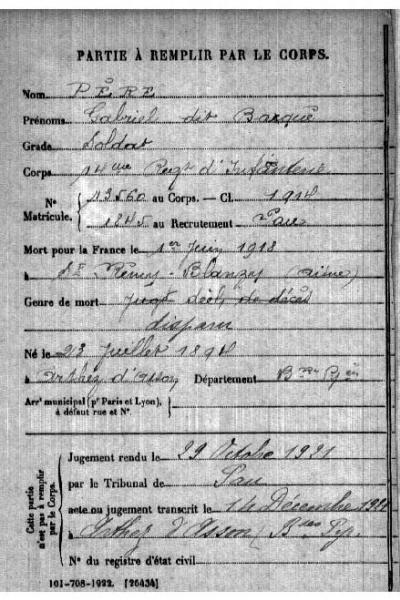 PARTIE À REMPLIR PAR LE CORPS.
Nom PÈRE
Prénoms Gabriel dit Basque
Grade Soldat
Corps 14me Regt d'Infanterie
N° Matricule. { 13560 au Corps. — Cl. 1914
1845 au Recrutement Pau
Mort pour la France le 1er Juin 1918
à St Rémy - Blanzy (Aisne)
Genre de mort Jugt décl de décès
disparu
Né le 23 Juillet 1894
à Arthez d'Asson Département Bses Pyén
Arrt municipal (pr Paris et Lyon), à défaut rue et N°.
Cette partie n'est pas à remplir par le Corps.
Jugement rendu le 29 Octobre 1921
par le Tribunal de Pau
acte ou jugement transcrit le 14 Décembre 1921
à Arthez d'Asson (Bses Py.
N° du registre d'état civil
101-708-1922. [26434]